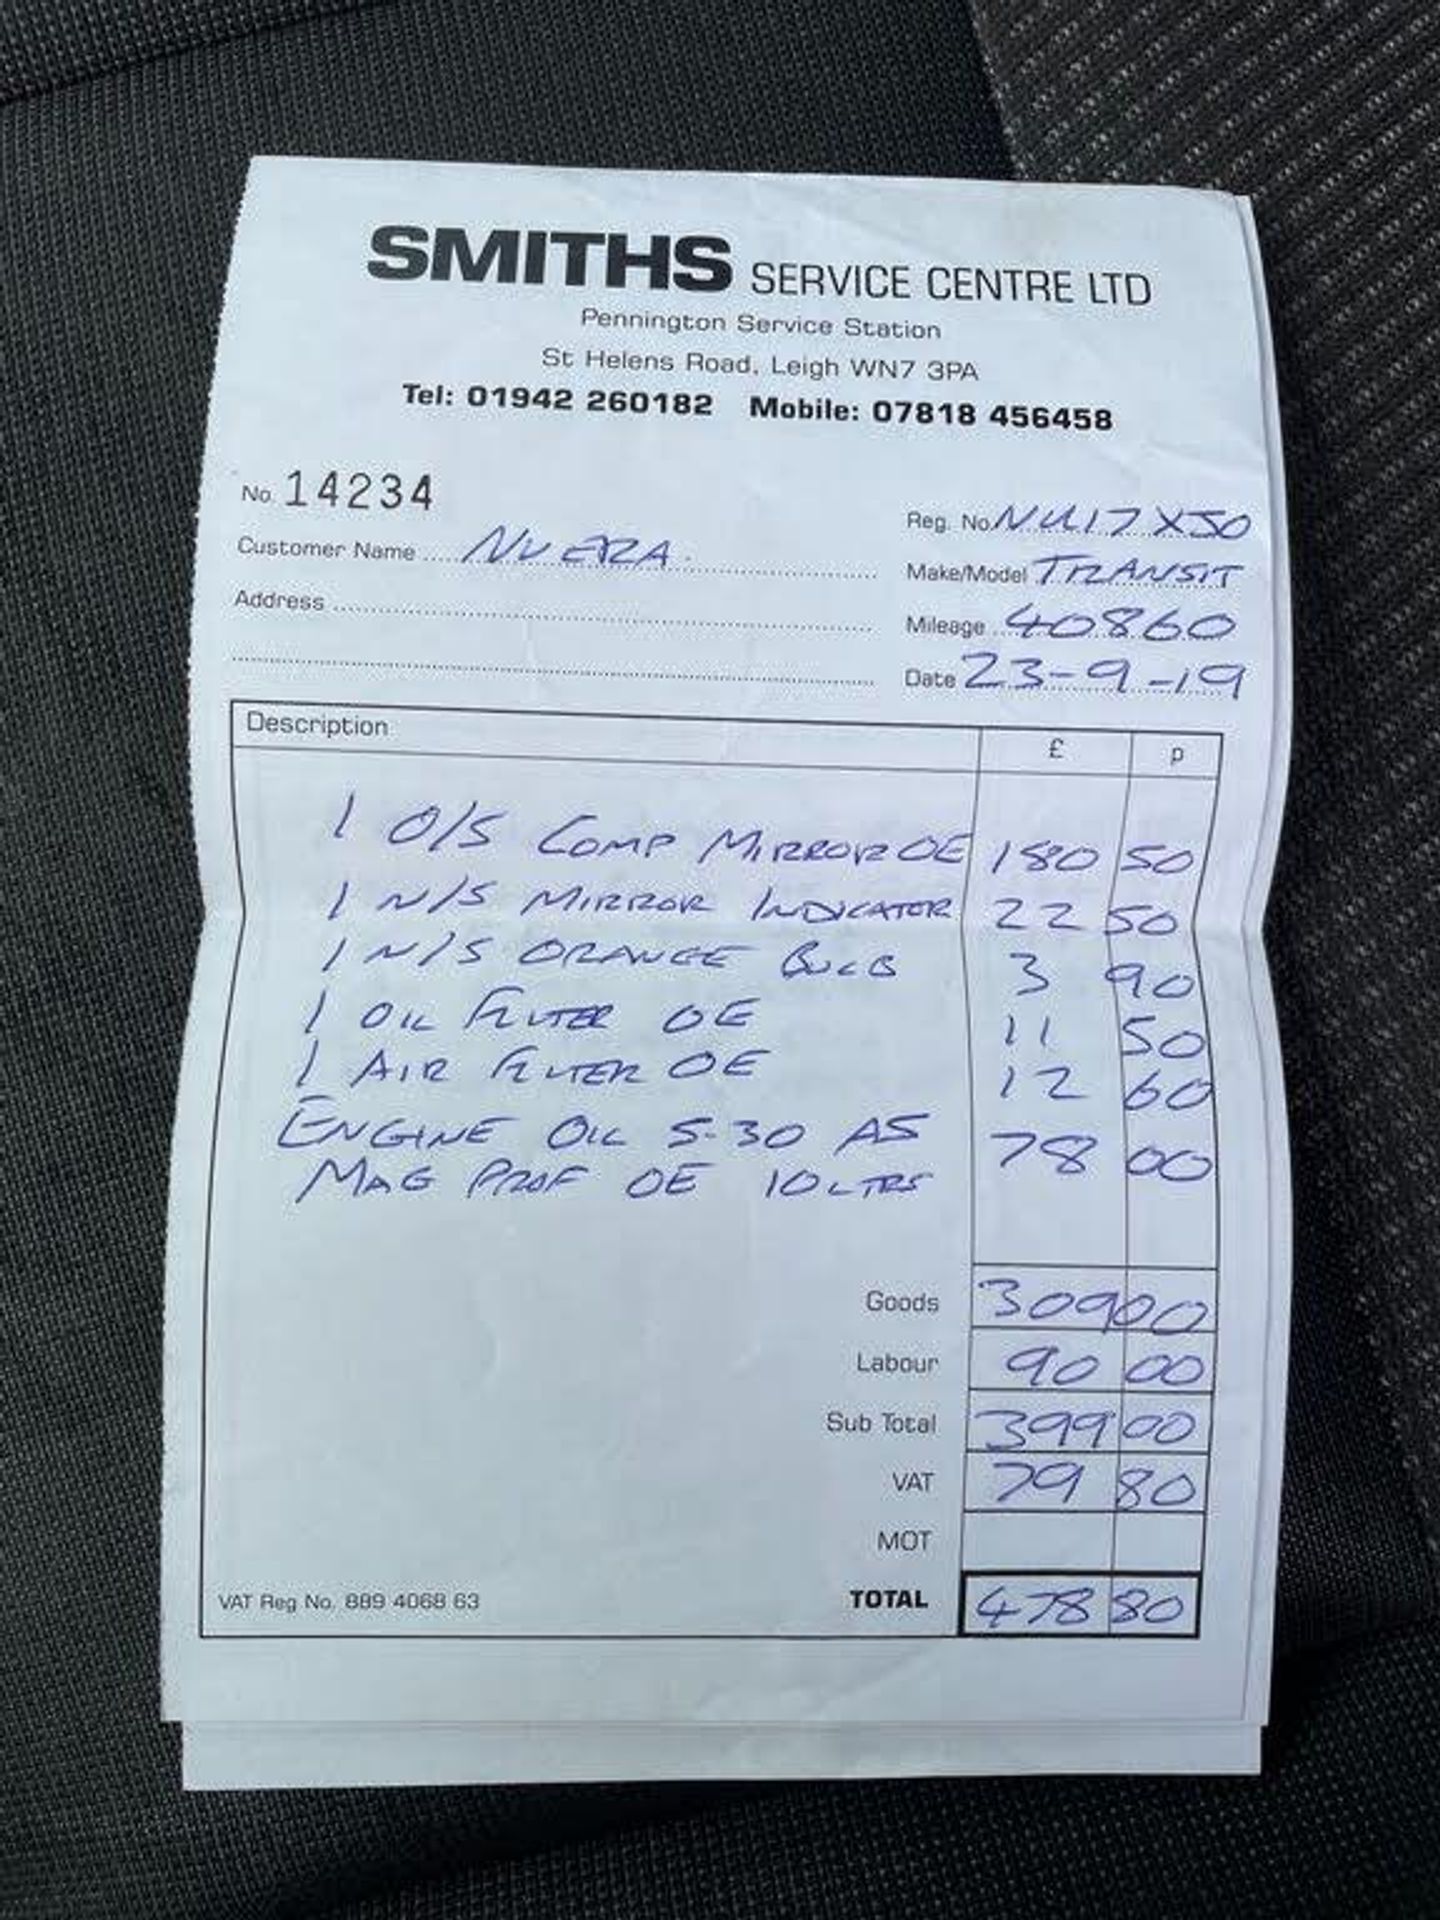 SMITHS SERVICE CENTRE LTD
Pennington Service Station
St Helens Road, Leigh WN7 3PA
Tel: 01942 260182 Mobile: 07818 456458
No. 14234
Reg. No. NU17 XJO
Customer Name NUERA
Make/Model TRANSIT
Address
Mileage 40860
Date 23-9-19
Description £ p
1 O/S COMP MIRROR OE 180 50
1 N/S MIRROR INDICATOR 22 50
1 N/S ORANGE BULB 3 90
1 OIL FILTER OE 11 50
1 AIR FILTER OE 12 60
ENGINE OIL 5-30 A5 78 00
MAG PROF OE 10 LTRS
Goods 309 00
Labour 90 00
Sub Total 399 00
VAT 79 80
MOT
VAT Reg No. 889 4068 63
TOTAL 478 80